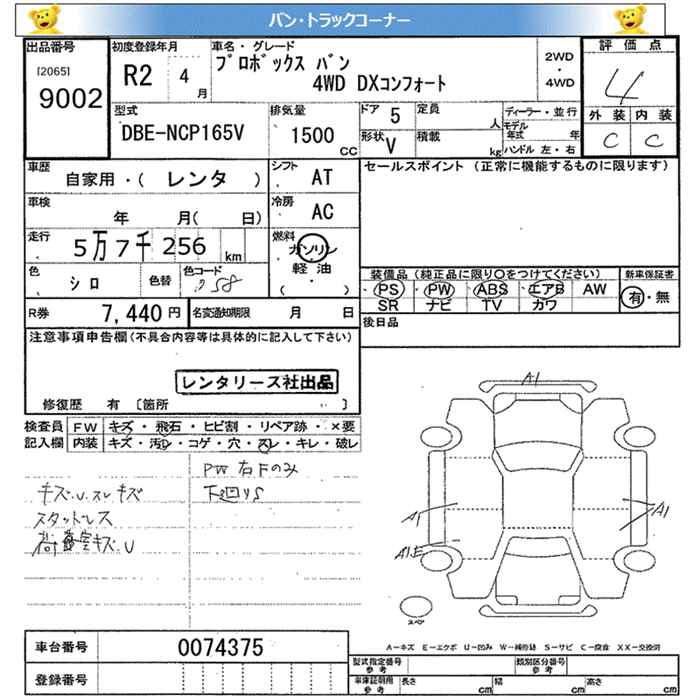 バン・トラックコーナー
出品番号
[2065]
9002
初度登録年月
R2 4 月
車名・グレード
プロボックス バン
4WD DXコンフォート
2WD
・
4WD
評価点
4
外装 内装
C C
型式
DBE-NCP165V
排気量
1500 CC
ドア 5
定員 人
形状 V
積載 kg
ディーラー・並行
モデル年式 年
ハンドル 左・右
車歴
自家用・( レンタ )
シフト AT
セールスポイント (正常に機能するものに限ります)
車検
年 月( 日)
冷房 AC
走行
5万7千256 km
燃料
ガソリン
軽油
( ・ )
色
シロ
色替
色コード
058
装備品(純正品に限り○をつけてください)
新車保証書
PS PW ABS エアB AW
SR ナビ TV カワ
有・無
R券 7,440円
名変通知期限 月 日
後日品
注意事項申告欄(不具合内容等は具体的に記入して下さい)
レンタリース社出品
修復歴 有 〔箇所 〕
検査員 FW キズ・飛石・ヒビ割・リペア跡・×要
記入欄 内装 キズ・汚レ・コゲ・穴・スレ・キレ・破レ
PW右Fのみ
キズ.U.スレキズ
下廻りS
スタットレス
荷室キズ.U
A1
A1
A1
A1.E
スペア
A−キズ E−エクボ U−凹み W−補修跡 S−サビ C−腐食 XX−交換済
車台番号 0074375
登録番号
型式指定番号 参考
類別区分番号 参考
車庫証明用 参考
長さ cm
幅 cm
高さ cm